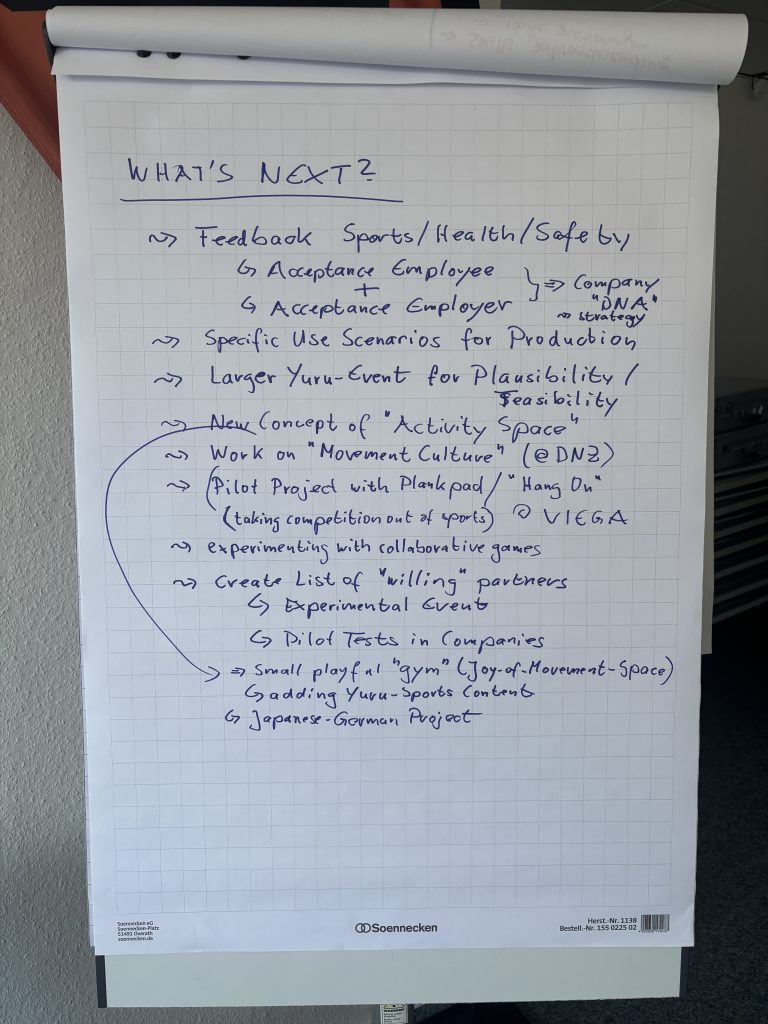 WHAT'S NEXT?
~> Feedback Sports/Health/Safety
↳ Acceptance Employee
+
↳ Acceptance Employer } => Company "DNA"
~> strategy
~> Specific Use Scenarios for Production
~> Larger Yuru-Event for Plausibility /
Feasibility
~> New Concept of "Activity Space"
~> Work on "Movement Culture" (@DNZ)
~> (Pilot Project with Plankpad/"Hang On"
(taking competition out of sports) @ VIEGA
~> experimenting with collaborative games
~> Create List of "willing" partners
↳ Experimental Event
↳ Pilot Tests in Companies
=> Small playful "gym" (Joy-of-Movement-Space)
↳ adding Yuru-Sports Content
↳ Japanese-German Project
Soennecken eG
Soennecken-Platz
51491 Overath
soennecken.de
Soennecken
Herst.-Nr. 1138
Bestell.-Nr. 155 0225 02
WARNING